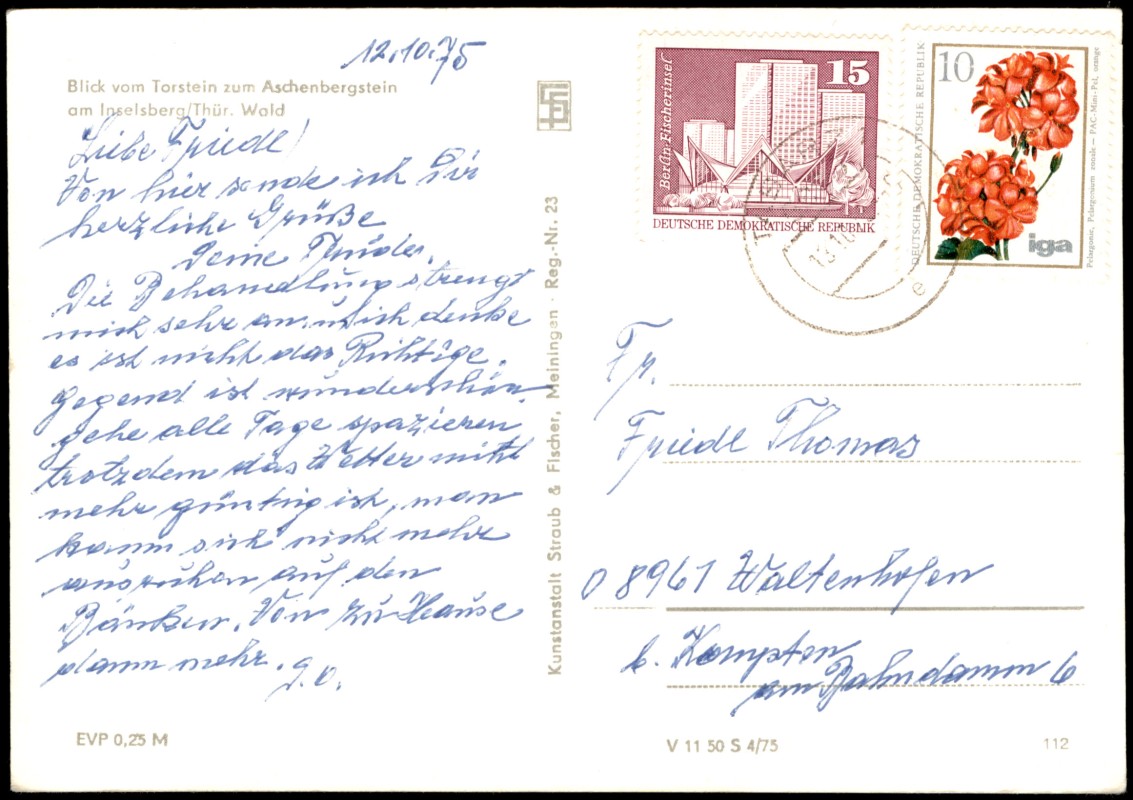 12.10.75
Blick vom Torstein zum Aschenbergstein
am Inselsberg/Thür. Wald
Liebe Friedel!
Von hier sende ich Dir
herzliche Grüße
Deine
Die Behandlung strengt
mich sehr an. u. ich denke
es ist nicht das Richtige.
Gegend ist wunderschön.
gehe alle Tage spazieren
trotzdem das Wetter nicht
mehr günstig ist, man
kann sich nicht mehr
ausruhen auf den
Bänken. Von zu Hause
dann mehr.
EVP 0,25 M
Kunstanstalt Straub & Fischer, Meiningen · Reg.-Nr. 23
Berlin-Fischerinsel
15
DEUTSCHE DEMOKRATISCHE REPUBLIK
10
DEUTSCHE DEMOKRATISCHE REPUBLIK
Pelargonie, Pelargonium zonale – PAC-Mini-Pel. orange
iga
13.10
e
Fr.
Friedl Thomas
D 8961 Waltenhofen
b. Kempten
am Bahndamm 6
V 11 50 S 4/75
112